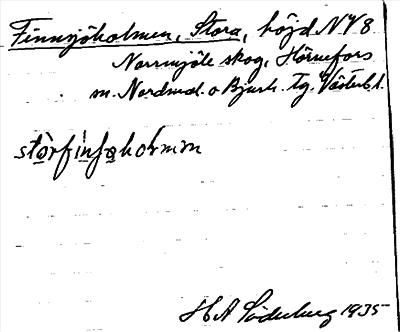 Finnsjöholmen, Stora, höjd NV 8
Norrmjöle skog, Hörnefors
sn. Nordmal. o Bjurh. tg. Västerb. l.
stòrfinſəhoḷmm
H A Söderberg 1935